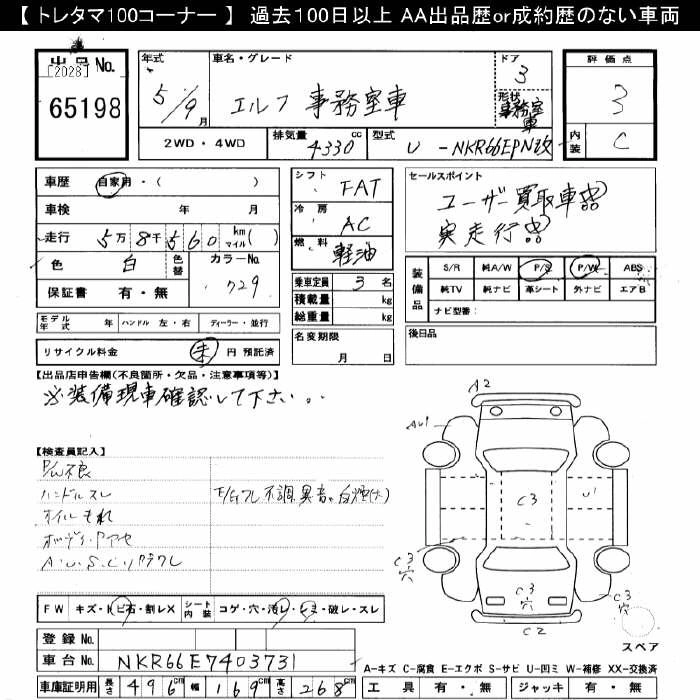 【 トレタマ100コーナー 】 過去100日以上 AA出品歴or成約歴のない車両
出品No.
[2028]
65198
年式
5/9月
車名・グレード
エルフ 事務室車
ドア
3
形状
事務室車
評価点
3
内装
C
2WD・4WD
排気量
4330cc
型式
U-NKR66EPN改
車歴 自家用・( )
車検 年 月
走行 5万8千560 km マイル( )
色 白 色替 カラーNo. 729
保証書 有・無
シフト FAT
冷房 AC
燃料 軽油
乗車定員 3名
積載量 kg
総重量 kg
名変期限 月 日
セールスポイント
ユーザー買取車!!
実走行!!
装備品
S/R 純A/W P/S P/W ABS
純TV 純ナビ 革シート 外ナビ エアB
ナビ型番:
後日品
モデル年式 年 ハンドル 左・右 ディーラー・並行
リサイクル料金 未 円 預託済
【出品店申告欄(不良箇所・欠品・注意事項等)】
※装備現車確認して下さい。
【検査員記入】
P/W不良
ハンドルスレ
オイルモれ
E/gフレ不調異音、白煙(大)
A・U・S・C・リクラクレ
A2
AU1
C3
U1
C3穴
C3穴
C3穴
C2
スペア
FW キズ・ヒビ石・割レX シート内装 コゲ・穴・汚レ・シミ・破レ・スレ
登録No.
車台No. NKR66E7403731
車庫証明用 長さ 496cm 幅 169cm 高さ 268cm
A-キズ C-腐食 E-エクボ S-サビ U-凹ミ W-補修 XX-交換済
工具 有・無 ジャッキ 有・無